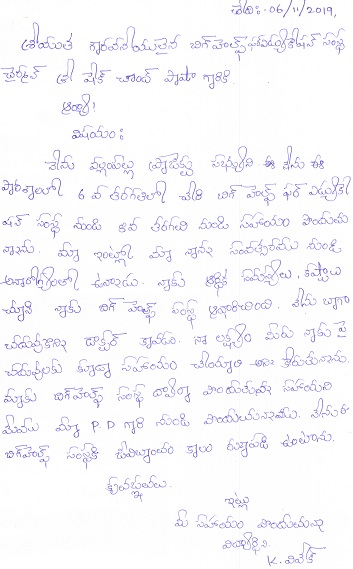 తేది:- 06/11/2019,
శ్రీయుత గౌరవనీయులైన బిగ్ హెల్ప్ ఫర్ ఎడ్యుకేషన్ సంస్థ
చైర్మన్ శ్రీ షేక్ చాంద్ పాషా గారికి
ఆర్యా!
విషయం:
నేను ఈ నేను ఈ
పాఠశాలలో 6 వ తరగతిలో చేరి బిగ్ హెల్ప్ ఫర్ ఎడ్యుకే
షన్ సంస్థ నుండి 8వ తరగతి నుండి సహాయం పొందుచు
న్నాను. మా ఇంట్లో మా నాన్న సంవత్సరము నుండి
అనారోగ్యంలో ఉన్నాడు. నాకు ఆర్థిక సమస్యలు, కష్టాలు
చూసి నాకు బిగ్ హెల్ప్ సంస్థ ఆదరించింది. నేను బాగా
చదువుకొని డాక్టర్ కావడం నా లక్ష్యం మీరు నాకు పై
చదువులకు కూడా సహాయం చేయాలి అని కోరుతున్నాను.
మాకు బిగ్ హెల్ప్ సంస్థ ద్వారా పొందుతున్న సహాయం
మేము మా P.D గారి నుండి పొందుచున్నాము. నేను
బిగ్ హెల్ప్ సంస్థకి జీవితాంతం కాలం రుణపడి ఉంటాను.
కృతజ్ఞతలు.
ఇట్లు
మీ సహాయం పొందుచున్న
విద్యార్థిని
K. వివేక్